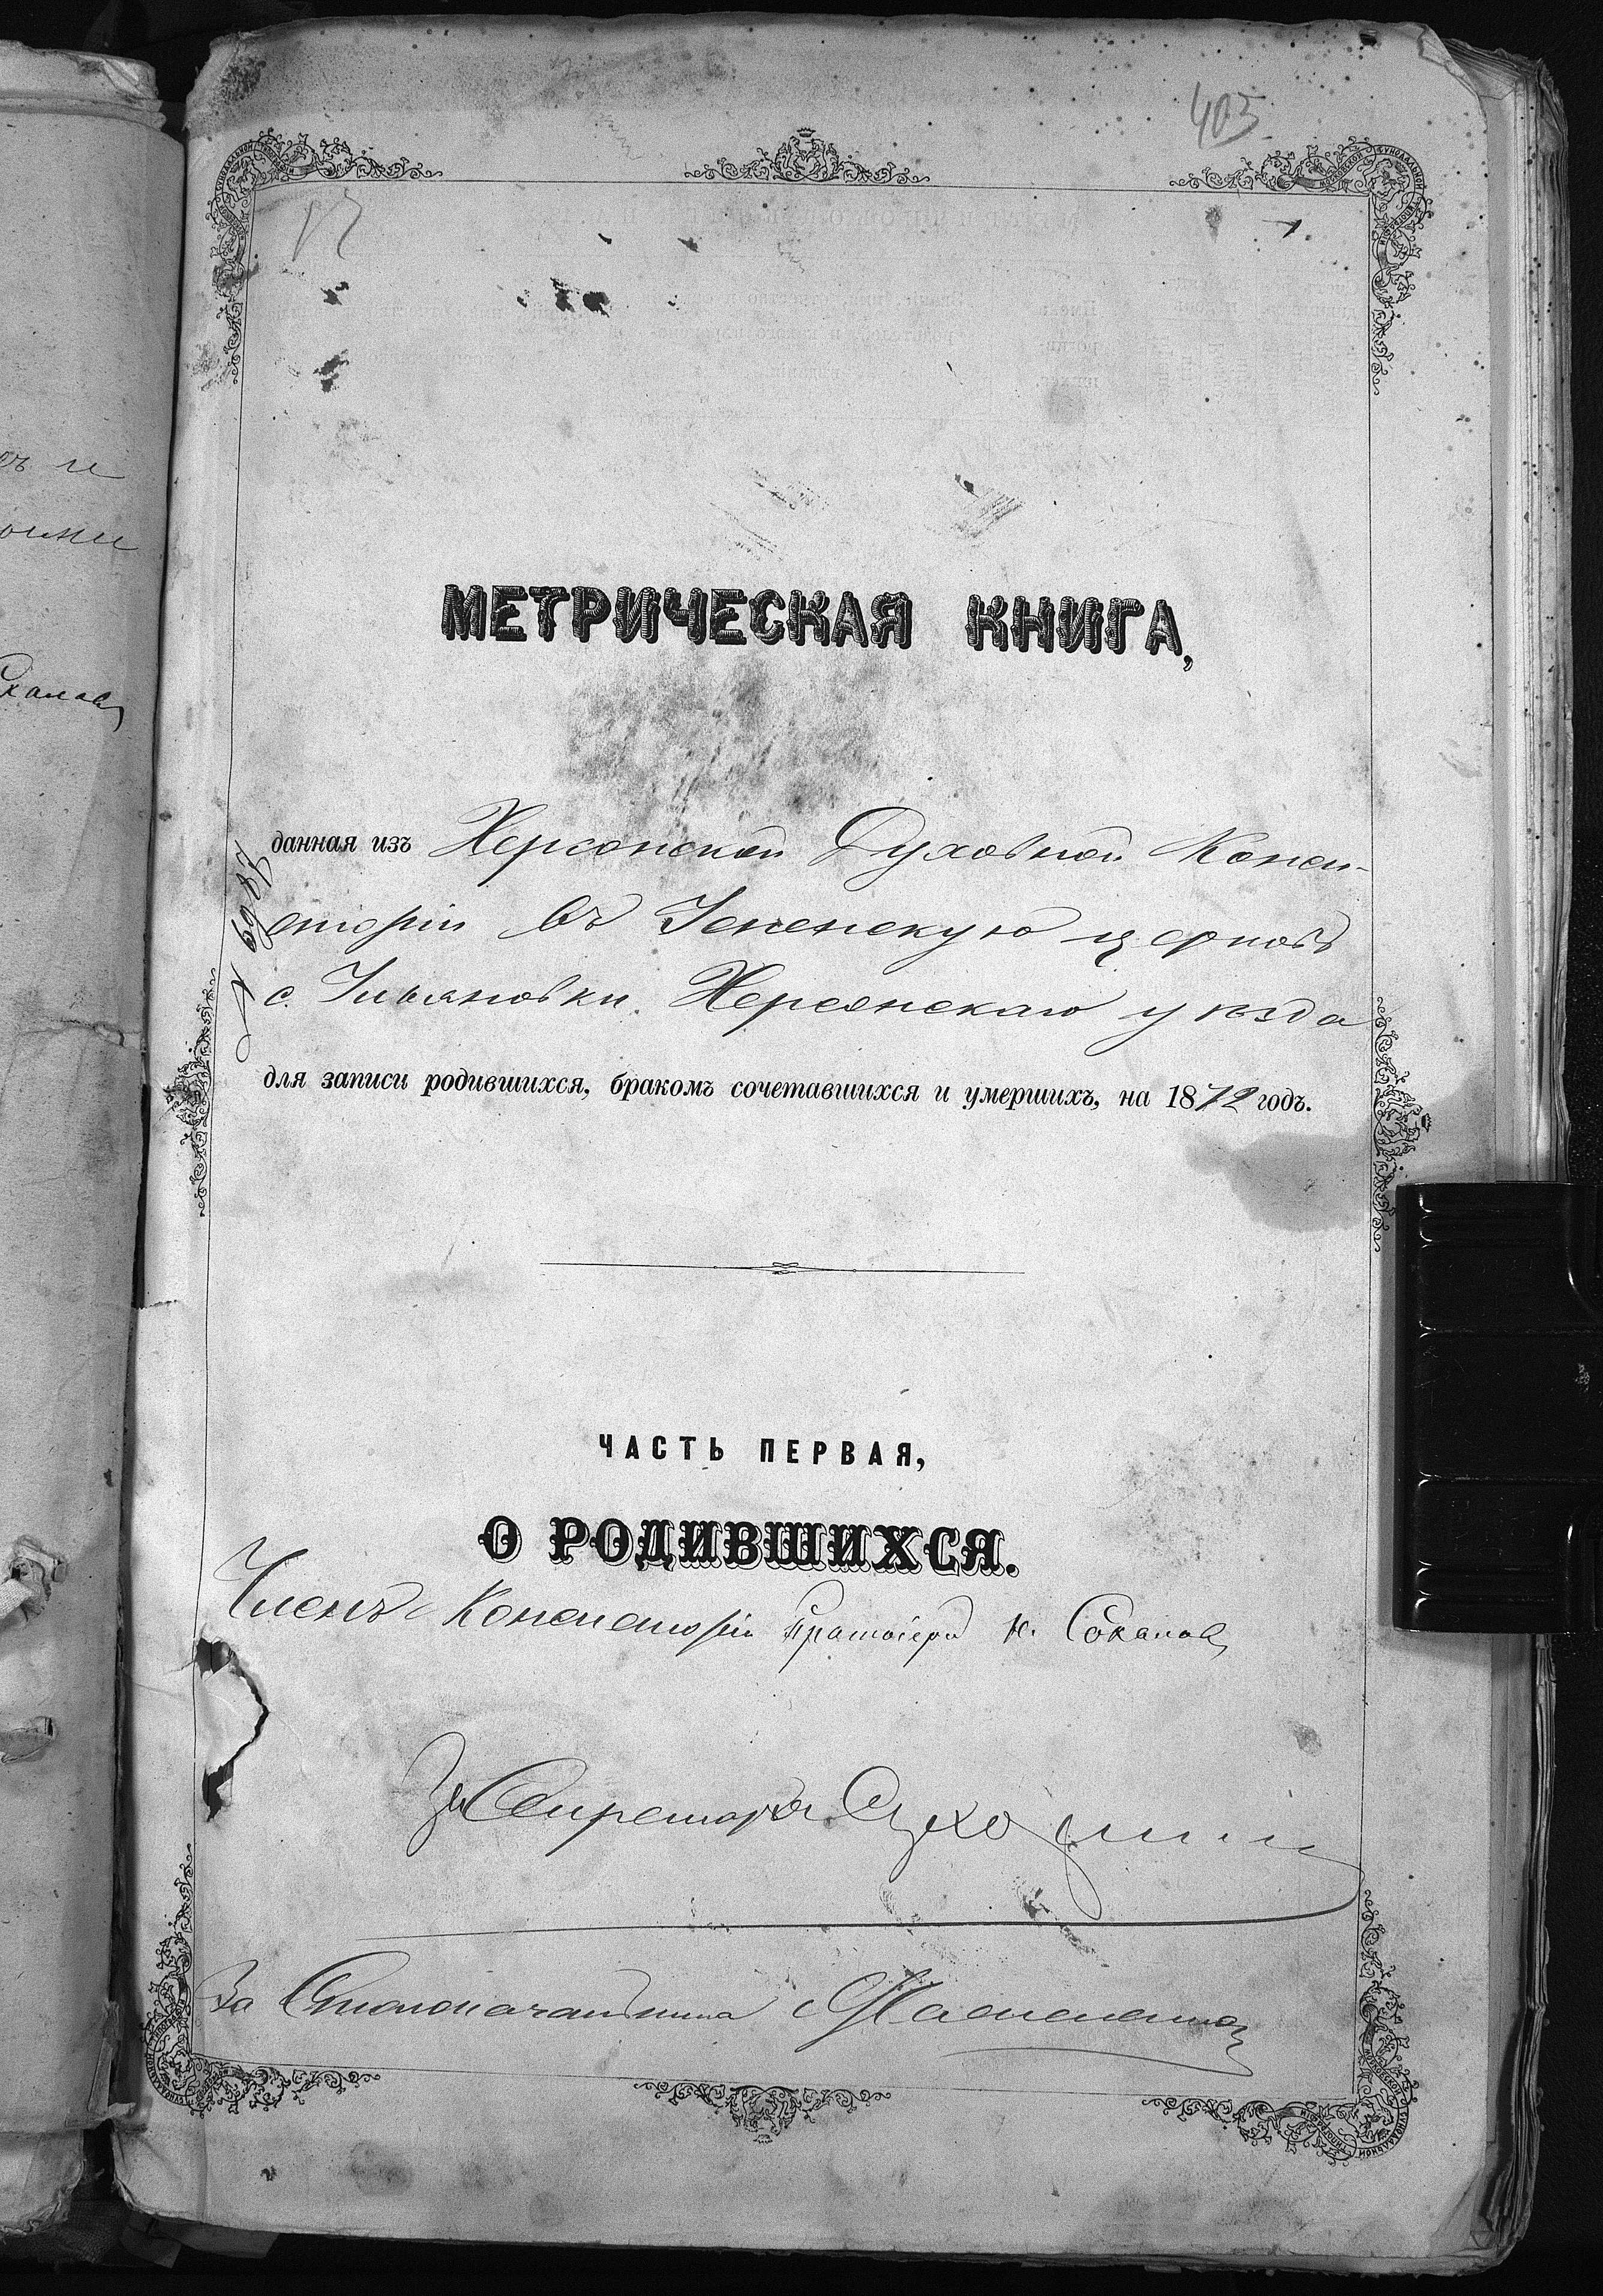 403
МЕТРИЧЕСКАЯ КНИГА,
данная изъ Херсонской Духовной Конси-
сторіи въ Успенскую церковь
с. Ильяновки Херсонскаго уѣзда
для записи родившихся, бракомъ сочетавшихся и умершихъ, на 1872 годъ.
ЧАСТЬ ПЕРВАЯ,
О РОДИВШИХСЯ.
Членъ Консисторіи Протоіерей
За Секретаря
За Столоначальника